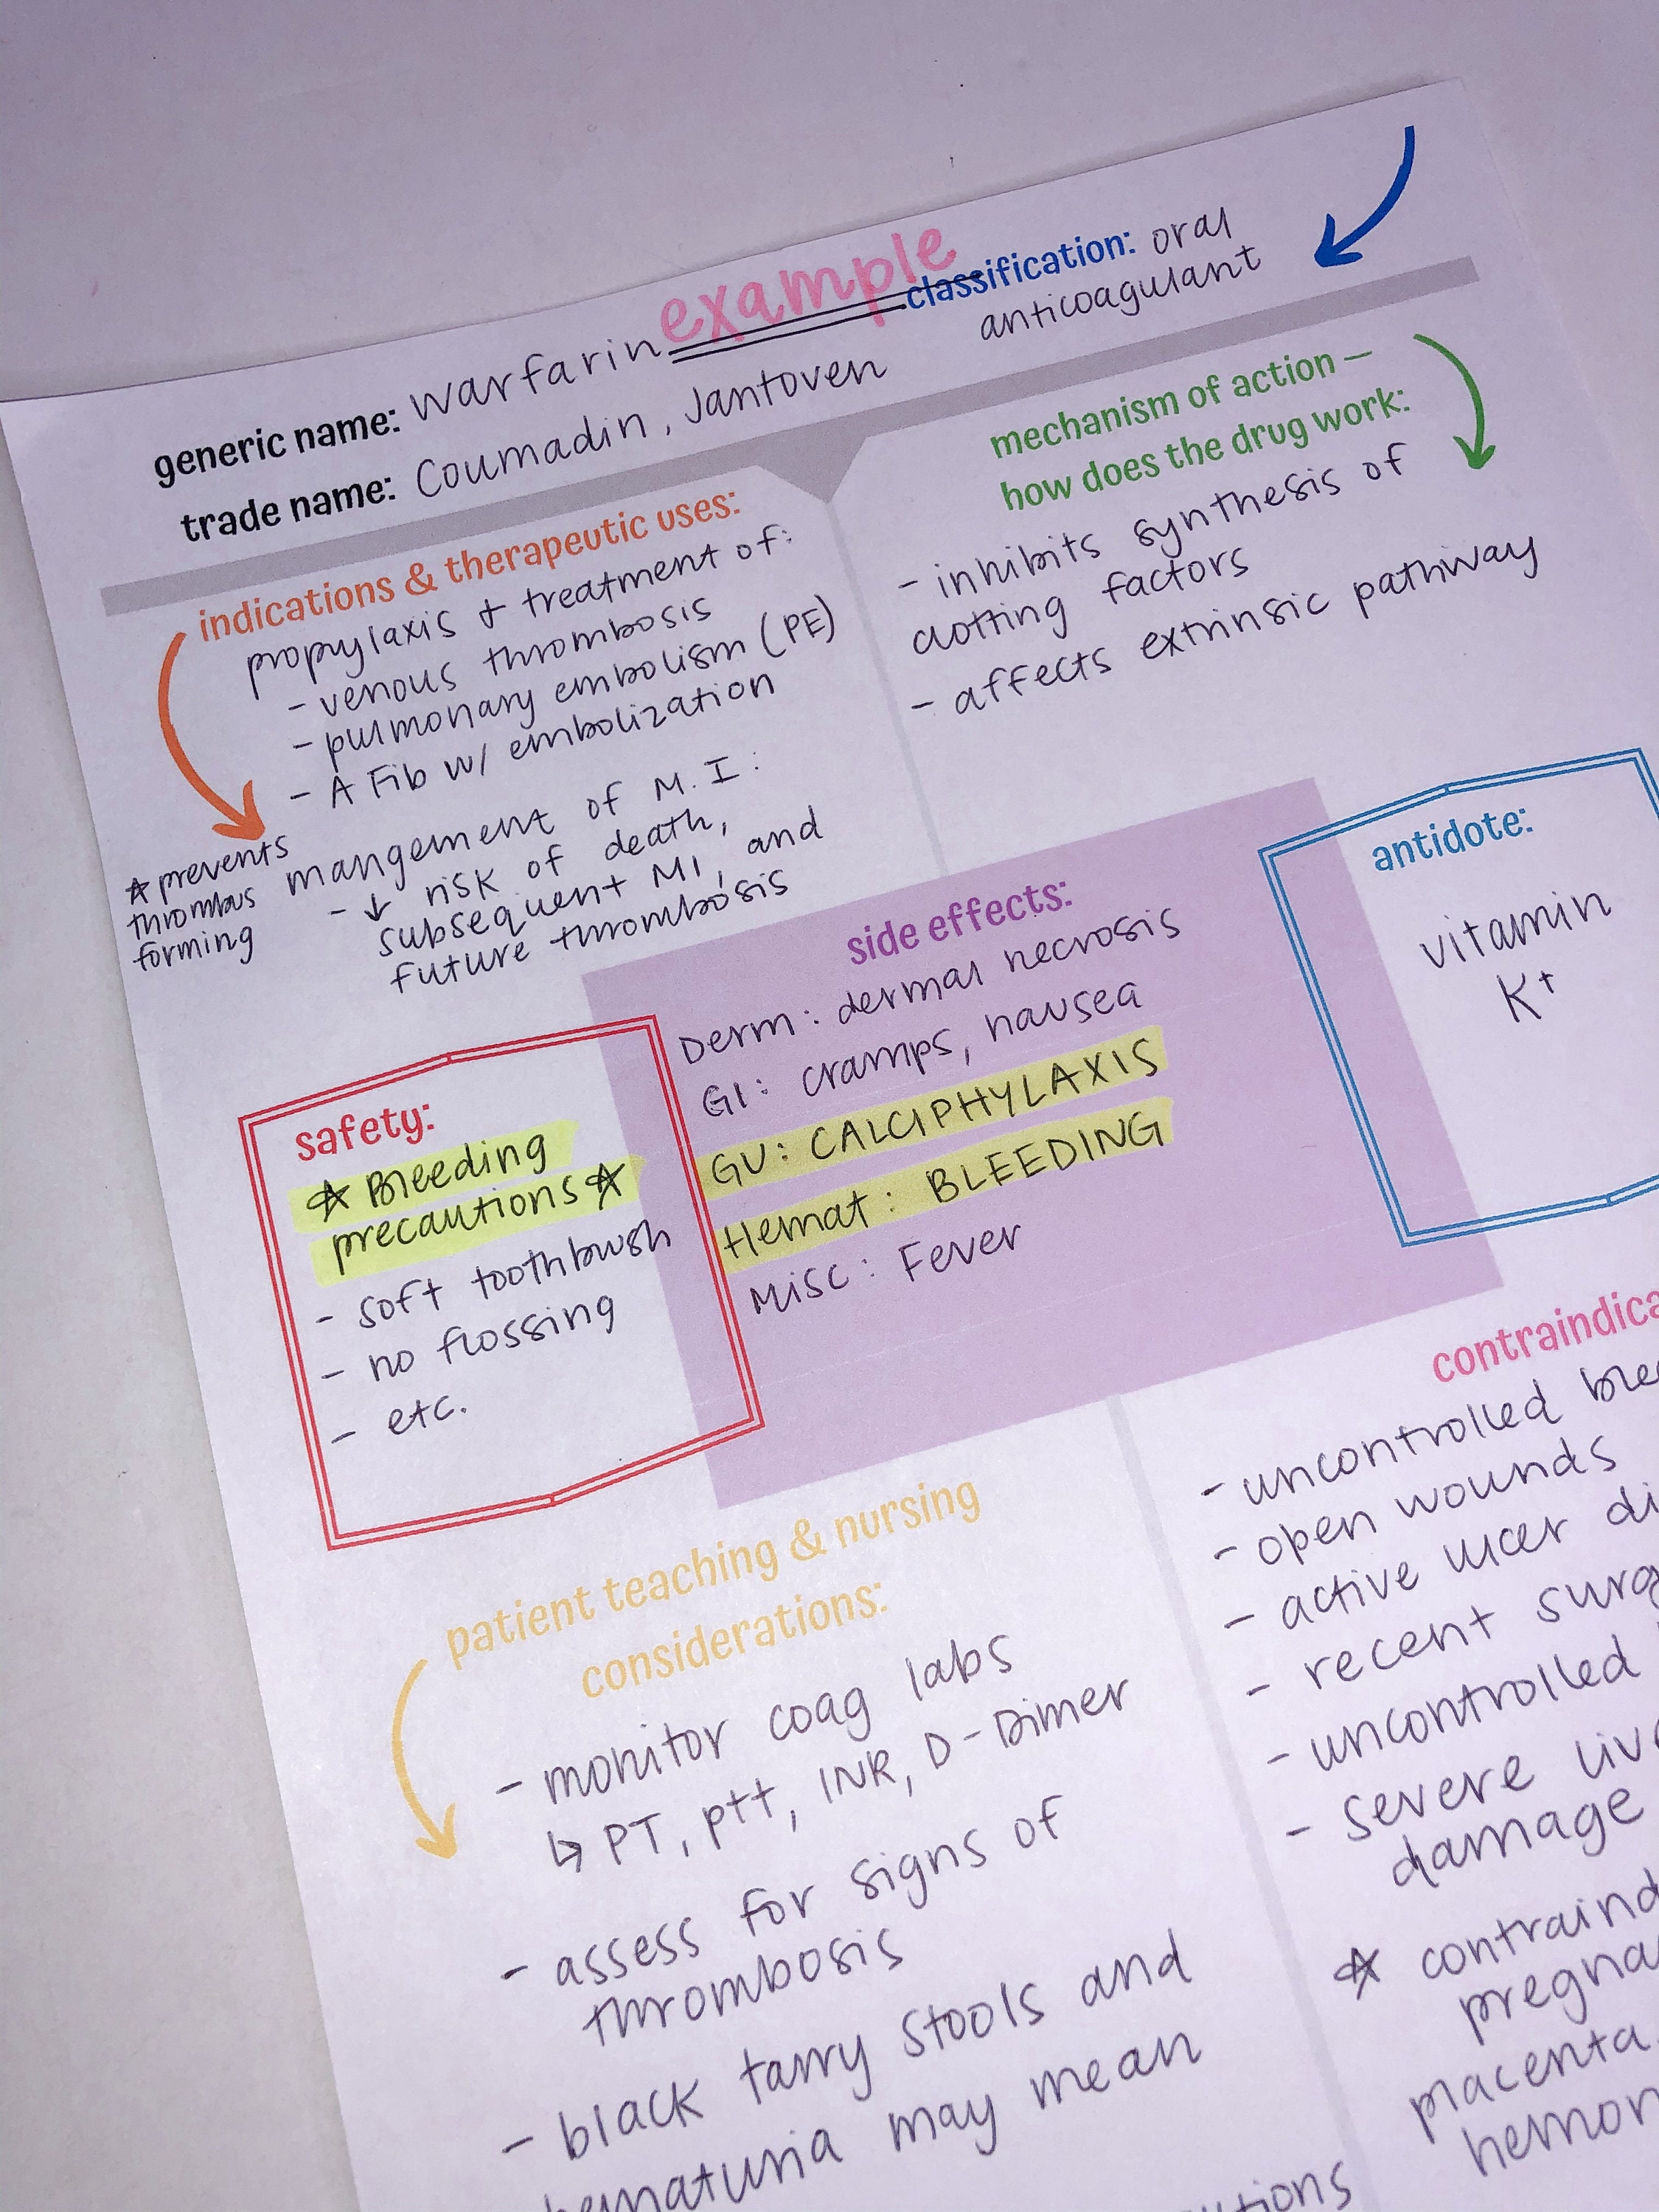 example
generic name: warfarin
trade name: Coumadin, Jantoven
classification: oral
anticoagulant
indications & therapeutic uses:
propylaxis & treatment of:
- venous thrombosis
- pulmonary embolism (PE)
- A Fib w/ embolization
mangement of M.I:
- ↓ risk of death,
subsequent MI, and
future thrombosis
☆ prevents
thrombus
forming
mechanism of action —
how does the drug work:
- inhibits synthesis of
clotting factors
- affects extrinsic pathway
side effects:
Derm: dermal necrosis
GI: cramps, nausea
GU: CALCIPHYLAXIS
Hemat: BLEEDING
Misc: Fever
antidote:
vitamin
K+
safety:
☆ Bleeding
precautions ☆
- soft toothbrush
- no flossing
- etc.
patient teaching & nursing
considerations:
- monitor coag labs
↳ PT, ptt, INR, D-Dimer
- assess for signs of
thrombosis
- black tarry stools and
may mean
- uncontrolled
- open wounds
- active ulcer
- recent
- uncontrolled
- severe
damage
☆